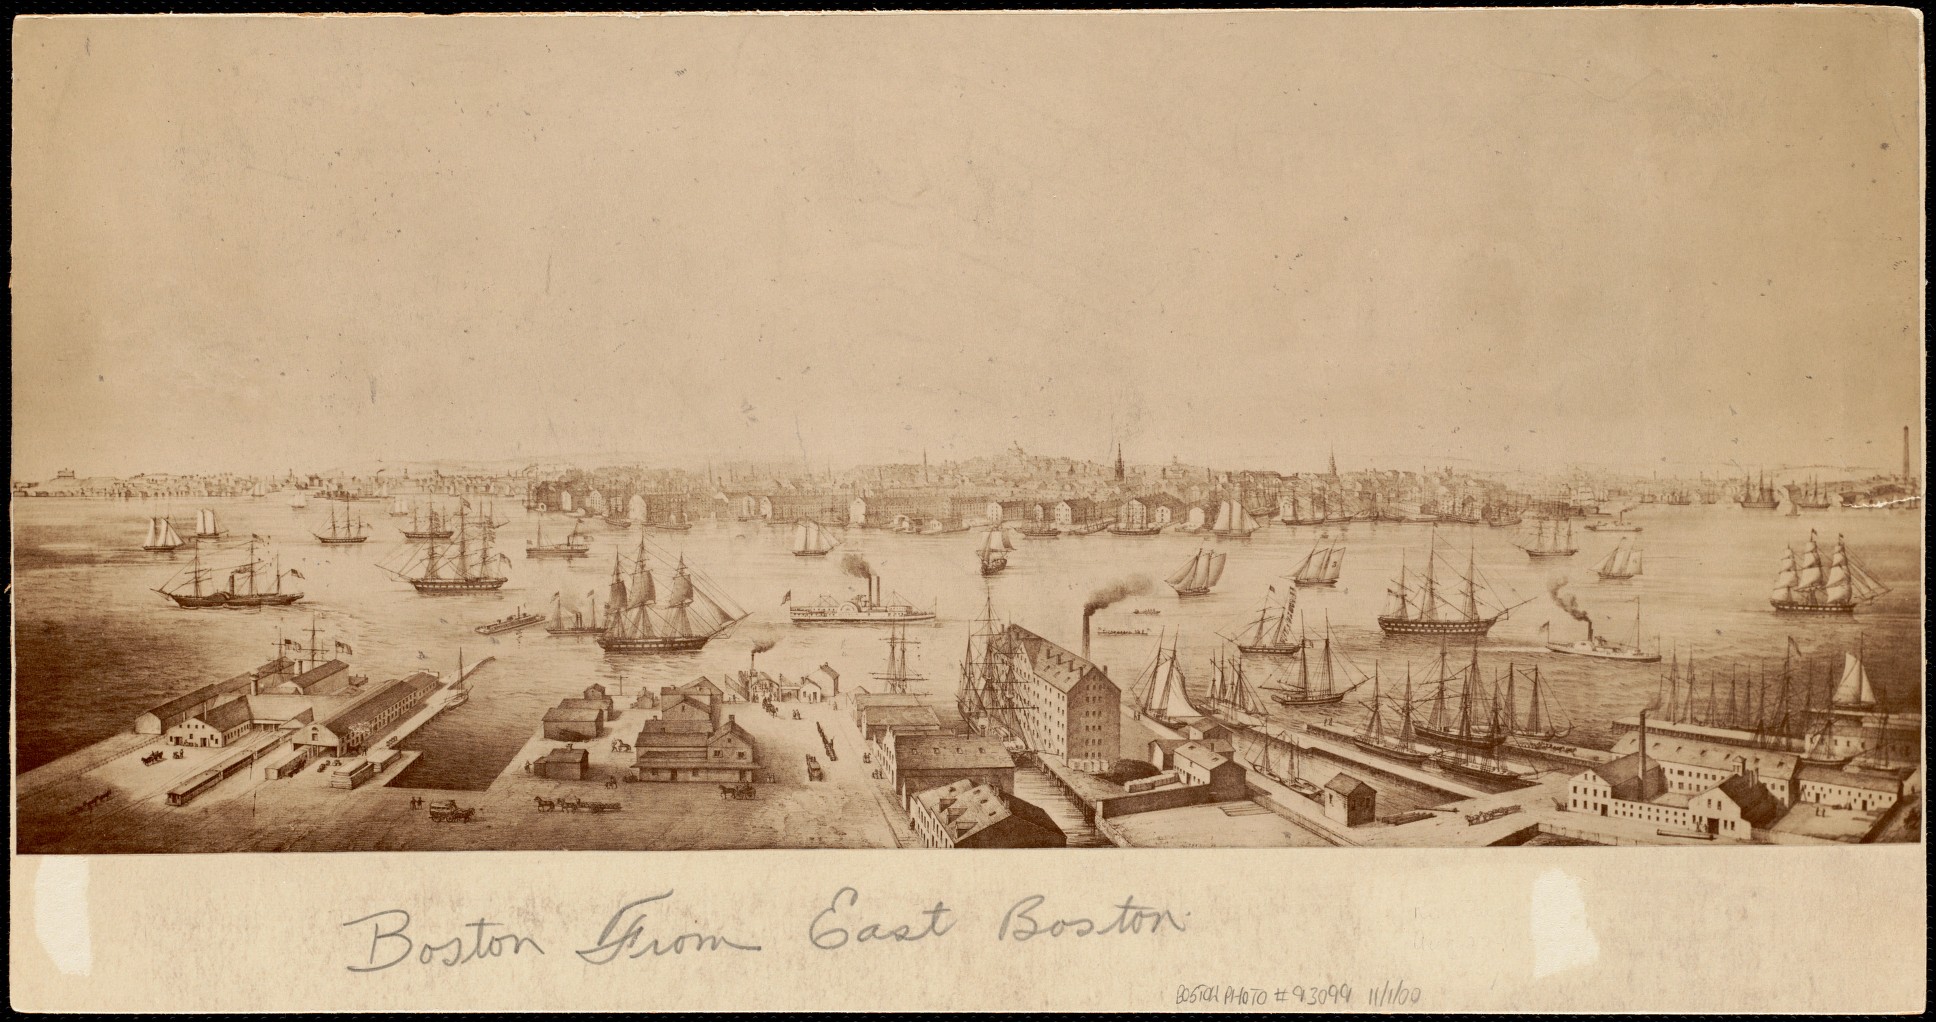 Boston From East Boston
BOSTON PHOTO # 93099 11/1/00